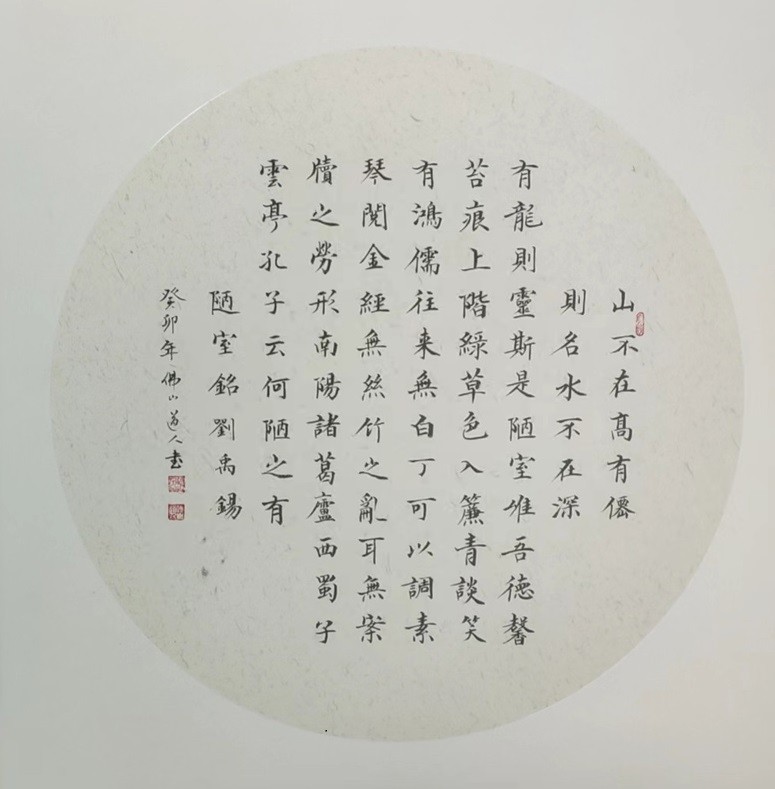 山不在高有僊
則名水不在深
有龍則靈斯是陋室惟吾德馨
苔痕上階綠草色入簾青談笑
有鴻儒往來無白丁可以調素
琴閱金經無絲竹之亂耳無案
牘之勞形南陽諸葛廬西蜀子
雲亭孔子云何陋之有
陋室銘劉禹錫
癸卯年佛山道人书